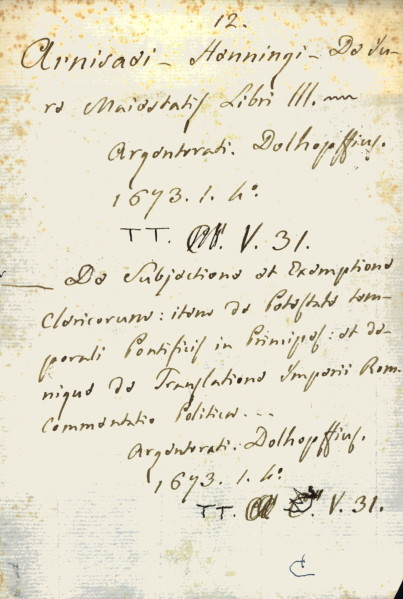 12.
Arnisaei - Henningi - De Ju-
re Maiestatis Libri III.
Argentorati. Dolhopffius.
1673. 1. 4o.
TT. V. 31.
— De Subjectione et Exemptione
Clericorum: item de Potestate tem-
porali Pontificis in Principes: et de-
nique de Translatione Imperii Rom.
Commentatio Politica. - - -
Argentorati. Dolhopffius.
1673. 1. 4o.
TT. V. 31.
C